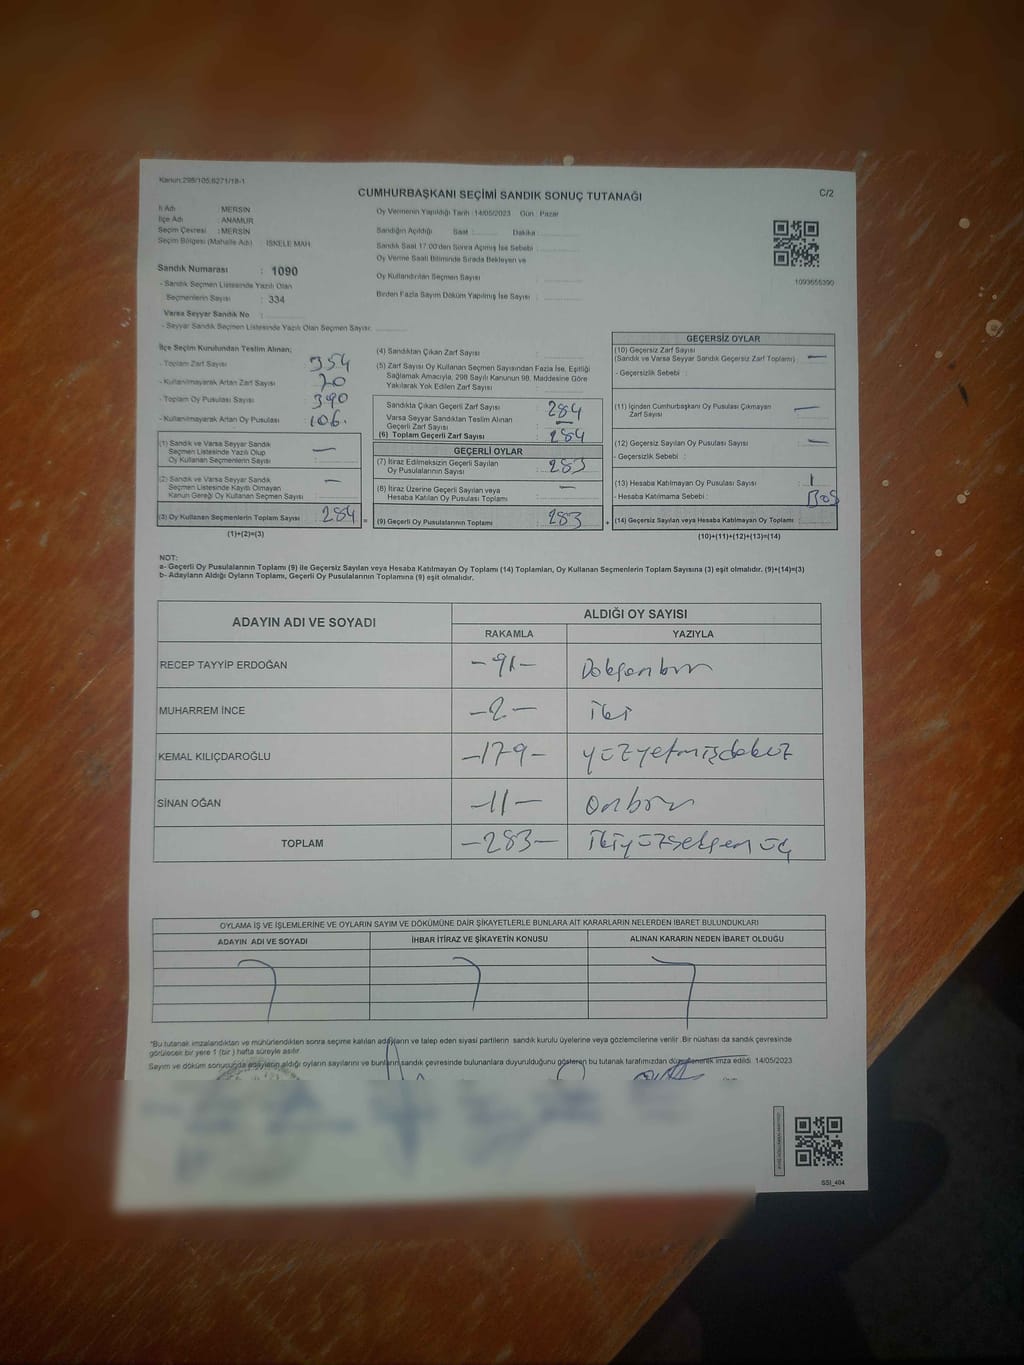 Kanun:298/105,6271/18-1
CUMHURBAŞKANI SEÇİMİ SANDIK SONUÇ TUTANAĞI
C/2
İl Adı : MERSİN
İlçe Adı : ANAMUR
Seçim Çevresi : MERSİN
Seçim Bölgesi (Mahalle Adı) : İSKELE MAH.
Sandık Numarası : 1090
- Sandık Seçmen Listesinde Yazılı Olan
Seçmenlerin Sayısı : 334
Varsa Seyyar Sandık No :
- Seyyar Sandık Seçmen Listesinde Yazılı Olan Seçmen Sayısı:
Oy Vermenin Yapıldığı Tarih :14/05/2023 Gün : Pazar
Sandığın Açıldığı Saat : Dakika :
Sandık Saat 17.00'den Sonra Açılmış İse Sebebi :
Oy Verme Saati Bitiminde Sırada Bekleyen ve
Oy Kullandırılan Seçmen Sayısı :
Birden Fazla Sayım Döküm Yapılmış İse Sayısı :
1093655390
İlçe Seçim Kurulundan Teslim Alınan;
- Toplam Zarf Sayısı : 354
- Kullanılmayarak Artan Zarf Sayısı : 70
- Toplam Oy Pusulası Sayısı : 390
- Kullanılmayarak Artan Oy Pusulası : 106.
(1) Sandık ve Varsa Seyyar Sandık
Seçmen Listesinde Yazılı Olup
Oy Kullanan Seçmenlerin Sayısı : —
(2) Sandık ve Varsa Seyyar Sandık
Seçmen Listesinde Kayıtlı Olmayan
Kanun Gereği Oy Kullanan Seçmen Sayısı : —
(3) Oy Kullanan Seçmenlerin Toplam Sayısı : 284 =
(1)+(2)=(3)
(4) Sandıktan Çıkan Zarf Sayısı :
(5) Zarf Sayısı Oy Kullanan Seçmen Sayısından Fazla İse, Eşitliği
Sağlamak Amacıyla, 298 Sayılı Kanunun 98. Maddesine Göre
Yakılarak Yok Edilen Zarf Sayısı :
Sandıkta Çıkan Geçerli Zarf Sayısı : 284
Varsa Seyyar Sandıktan Teslim Alınan
Geçerli Zarf Sayısı : —
(6) Toplam Geçerli Zarf Sayısı : 284
GEÇERLİ OYLAR
(7) İtiraz Edilmeksizin Geçerli Sayılan
Oy Pusulalarının Sayısı : 283
(8) İtiraz Üzerine Geçerli Sayılan veya
Hesaba Katılan Oy Pusulası Toplamı : —
(9) Geçerli Oy Pusulalarının Toplamı : 283 +
GEÇERSİZ OYLAR
(10) Geçersiz Zarf Sayısı
(Sandık ve Varsa Seyyar Sandık Geçersiz Zarf Toplamı) : —
- Geçersizlik Sebebi :
(11) İçinden Cumhurbaşkanı Oy Pusulası Çıkmayan
Zarf Sayısı : —
(12) Geçersiz Sayılan Oy Pusulası Sayısı : —
- Geçersizlik Sebebi :
(13) Hesaba Katılmayan Oy Pusulası Sayısı : 1
- Hesaba Katılmama Sebebi : BOŞ
(14) Geçersiz Sayılan veya Hesaba Katılmayan Oy Toplamı :
(10)+(11)+(12)+(13)=(14)
NOT:
a- Geçerli Oy Pusulalarının Toplamı (9) ile Geçersiz Sayılan veya Hesaba Katılmayan Oy Toplamı (14) Toplamları, Oy Kullanan Seçmenlerin Toplam Sayısına (3) eşit olmalıdır. (9)+(14)=(3)
b- Adayların Aldığı Oyların Toplamı, Geçerli Oy Pusulalarının Toplamına (9) eşit olmalıdır.
ADAYIN ADI VE SOYADI ALDIĞI OY SAYISI
RAKAMLA YAZIYLA
RECEP TAYYİP ERDOĞAN -91- Doksanbir
MUHARREM İNCE -2- iki
KEMAL KILIÇDAROĞLU -179- yüzyetmişdokuz
SİNAN OĞAN -11- onbir
TOPLAM -283- ikiyüzseksenüç
OYLAMA İŞ VE İŞLEMLERİNE VE OYLARIN SAYIM VE DÖKÜMÜNE DAİR ŞİKAYETLERLE BUNLARA AİT KARARLARIN NELERDEN İBARET BULUNDUKLARI
ADAYIN ADI VE SOYADI İHBAR İTİRAZ VE ŞİKAYETİN KONUSU ALINAN KARARIN NEDEN İBARET OLDUĞU
"Bu tutanak imzalandıktan ve mühürlendikten sonra seçime katılan adayların ve talep eden siyasi partilerin sandık kurulu üyelerine veya gözlemcilerine verilir. Bir nüshası da sandık çevresinde
görülecek bir yere 1 (bir) hafta süreyle asılır.
Sayım ve döküm sonucunda adayların aldığı oyların sayılarını ve bunların sandık çevresinde bulunanlara duyurulduğunu gösteren bu tutanak tarafımızdan düzenlenerek imza edildi. 14/05/2023
SSI_404